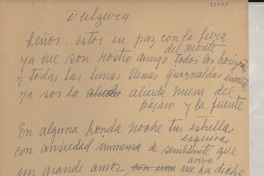 Dulzura
Señor, estoy en paz con la fiera
del monte
ya me son rostro amigo todos los horizontes
y todas las lunas llenas
ya sos la aliada nueva del
pájaro y la fuente
En alguna honda noche tu estrella
con ansiedad inmensa de semblante que
un grande amor me ha dicho